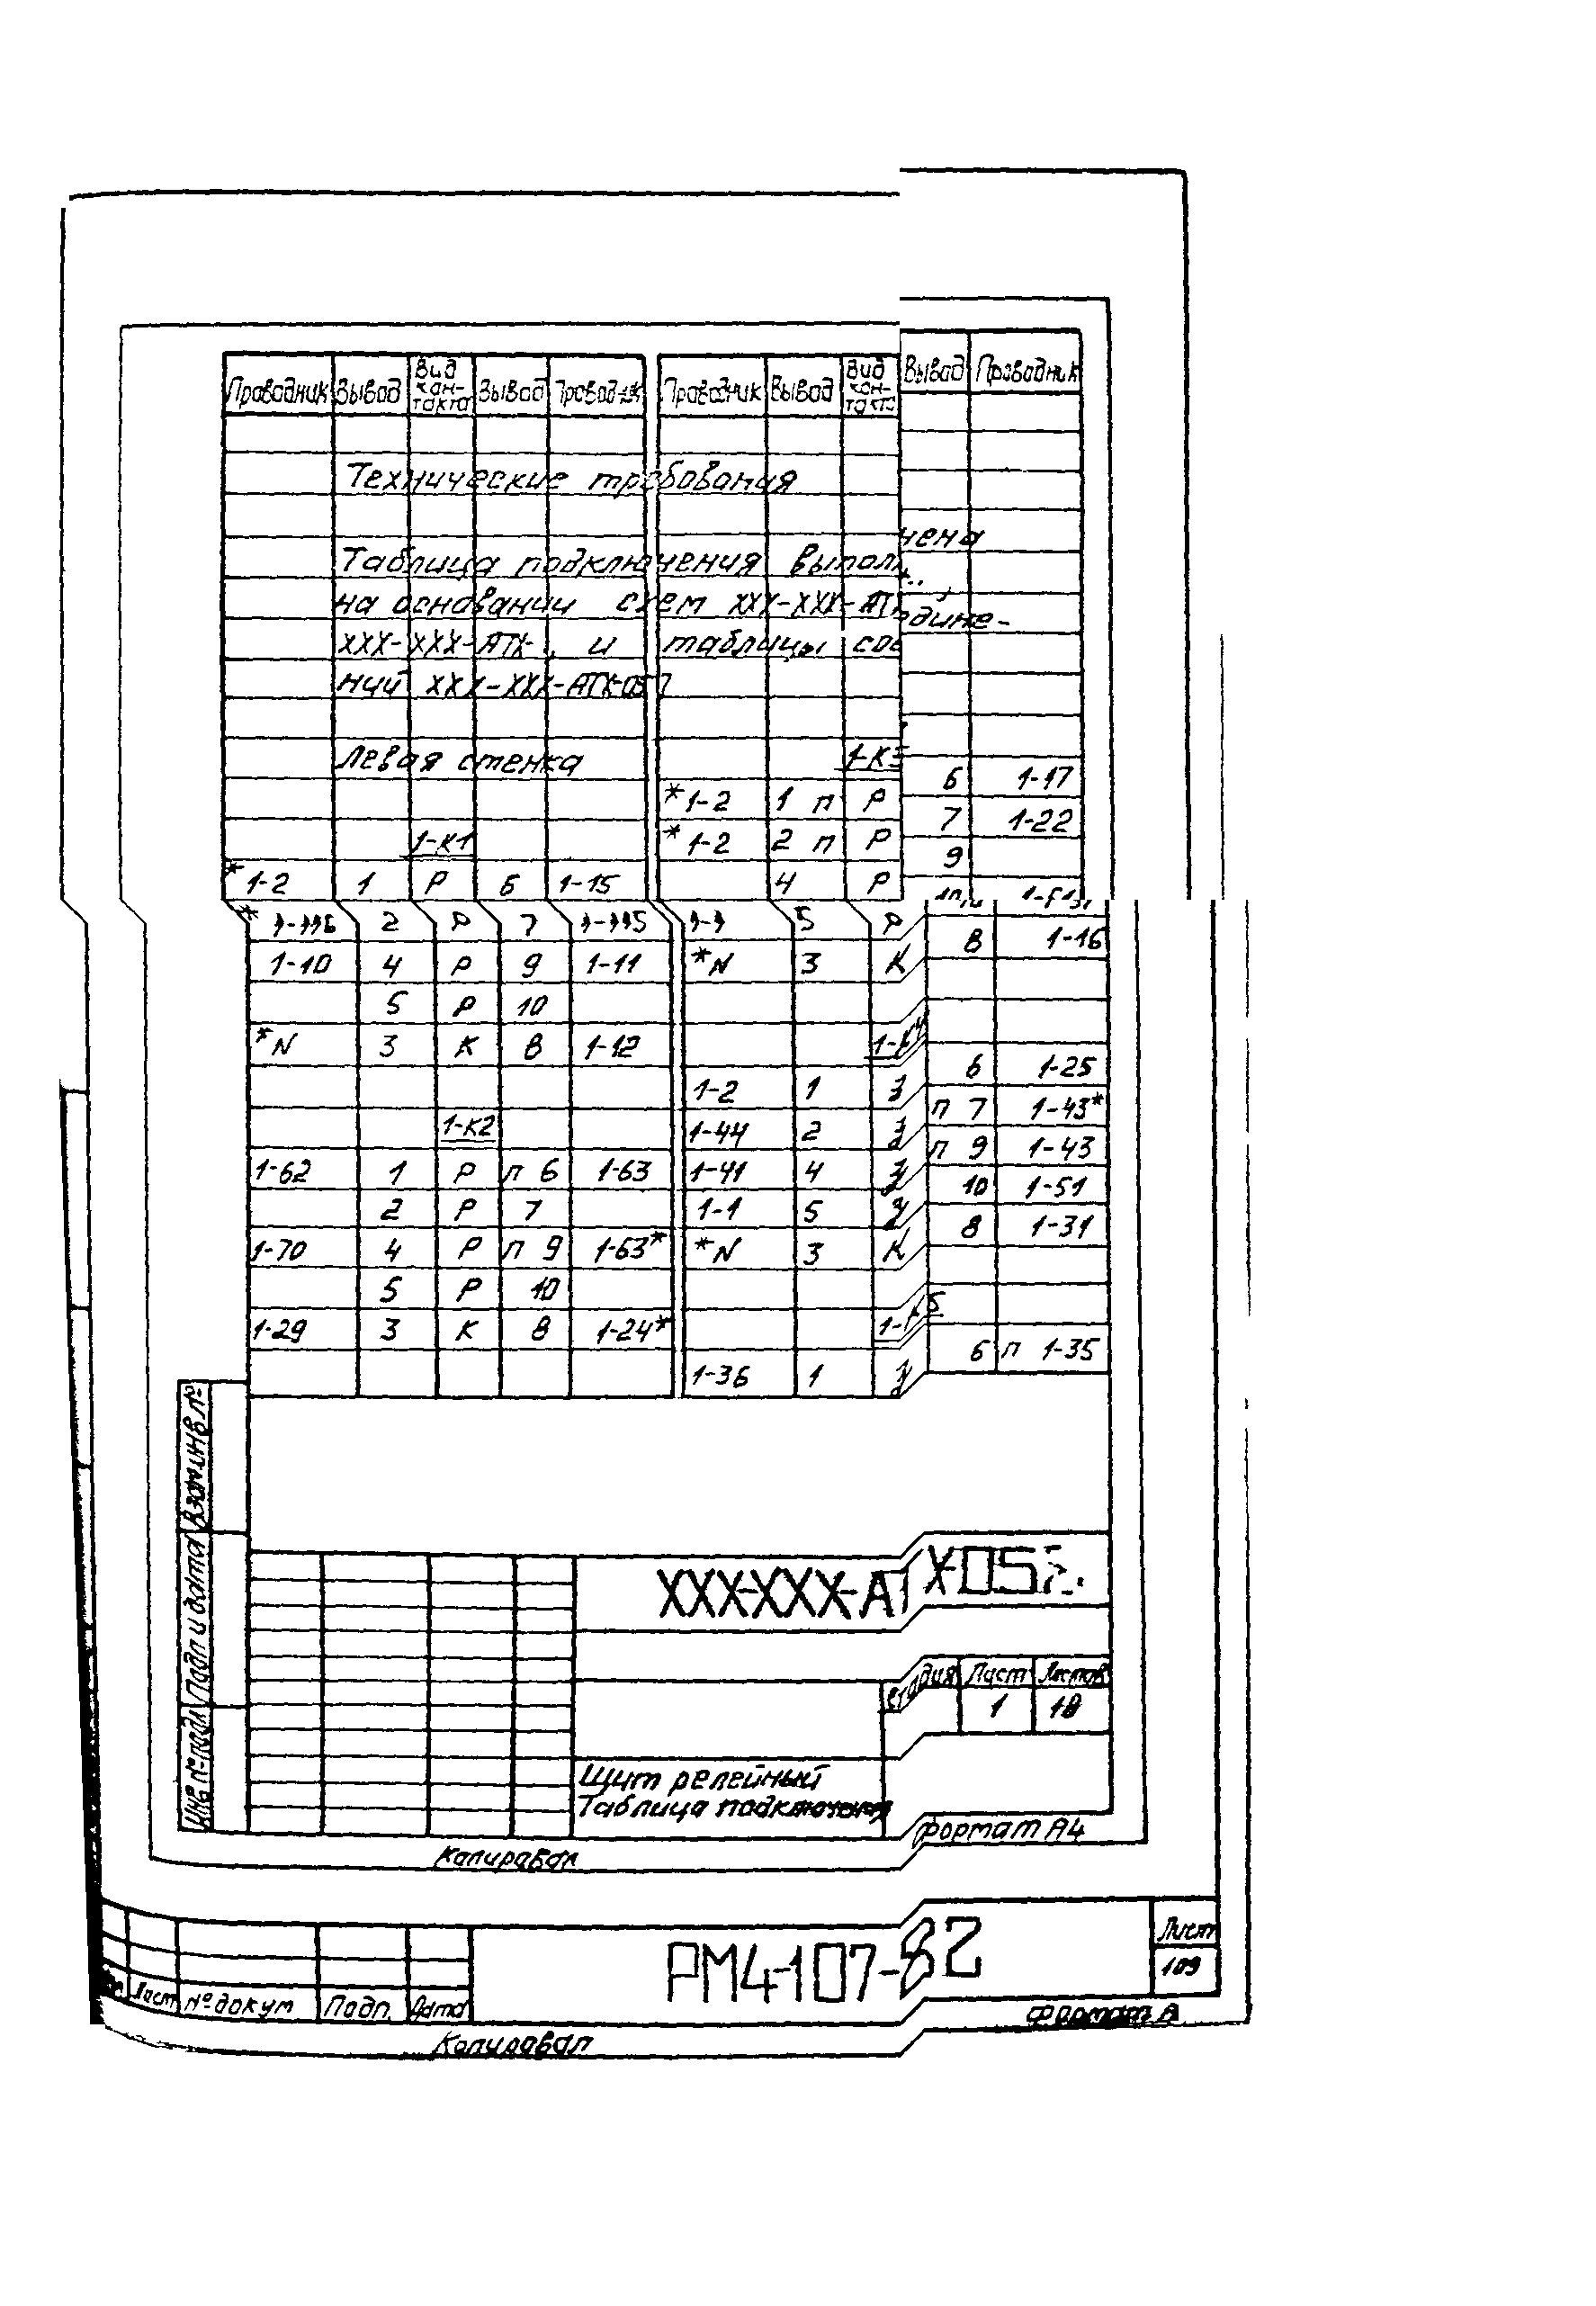 Проводник Вывод Вид кон-такта Вывод Проводник Проводник Вывод Вид кон-такта Вывод Проводник
Технические требования
Таблица подключения выполнена
на основании схем XXX-XXX-АТХ-..,
XXX-XXX-АТХ-.. и таблицы соедине-
ний XXX-XXX-АТХ-05
Левая стенка
1-К1
*1-2 1 Р 6 1-15
* 2 Р 7
1-10 4 Р 9 1-11
5 Р 10
*N 3 К 8 1-12
1-К2
1-62 1 Р п 6 1-63
2 Р 7
1-70 4 Р п 9 1-63*
5 Р 10
1-29 3 К 8 1-24*
1-К3
*1-2 1 п Р 6 1-17
*1-2 2 п Р 7 1-22
4 Р 9
5 Р
*N 3 К 8 1-16
1-К4
1-2 1 З 6 1-25
1-44 2 З п 7 1-43*
1-41 4 З п 9 1-43
1-1 5 З 10 1-51
*N 3 К 8 1-31
1-К5
1-36 1 З 6 п 1-35
Взам.инв.№
Подп и дата
Инв №подл
XXX-XXX-АТХ-05
Стадия Лист Листов
1 18
Щит релейный
Таблица подключения
Копировал
Формат А4
Лист №докум Подп. Дата
РМ4-107-82
Лист
109
Копировал
Формат А